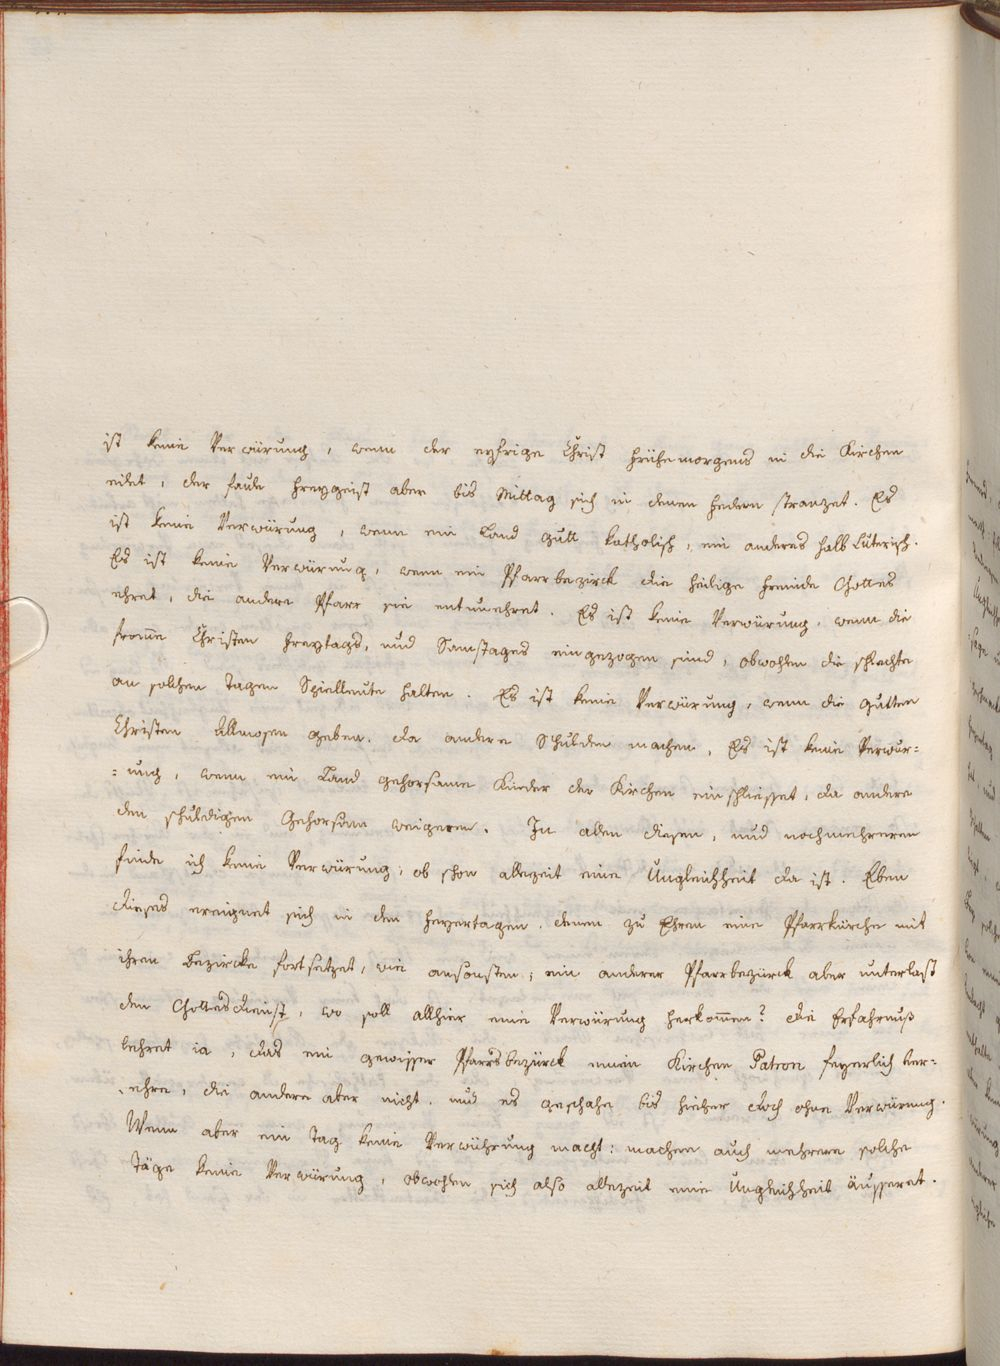 ist keine Verwürung, wenn der eyfrige Christ frühe morgens in die Kirchen
eilet, der faule Freygeist aber bis Mittag sich in denen Federn stranzet. Es
ist keine Verwürung, wenn ein Land gutt katholisch, ein anderes halb Luterisch.
Es ist keine Verwürung, wenn ein Pfarrbezirck die heilige Freinde Gottes
ehret, die andere Pfarr sie entunehret. Es ist keine Verwürung, wenn die
from̄e Christen Freytags, und Samstages eingezogen sind, obwohlen die schlechte
an solchen Tagen Spielleute halten. Es ist keine Verwürung, wenn die gutten
Christen Allmosen geben, da andere Schulden machen, Es ist keine Verwür=
=ung, wenn ein Land gehorsame Kinder der Kirchen einschliesset, da andere
den schuldigen Gehorsam weigeren. In allen diesen, und noch mehreren
finde ich keine Verwürung; ob schon allezeit eine Ungleichheit da ist. Eben
dieses ereignet sich in den Feyertagen, denen zu Ehren eine Pfarrkürche mit
ihren Bezircke fortsetzet, wie ansonsten; ein anderer Pfarrbezürck aber unterlast
den Gottesdienst, wo soll allhier eine Verwürung herkom̄en? die Erfahrnuß
lehret ia, das ein gewisser Pfarrsbezürck einen Kirchen Patron feyerlich ver=
ehre, die andere aber nicht, und es geschahe bis hieher doch ohne Verwürung.
Wenn aber ein Tag keine Verwührung macht: machen auch mehrere solche
Täge keine Verwürung, obwohlen sich also allezeit eine Ungleichheit äusseret.